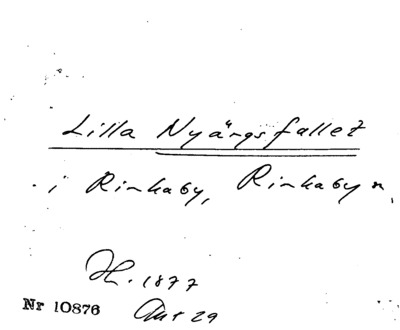 Lilla Nyängsfallet
i Rinkaby, Rinkaby n,
H. 1877
Nr 10876 Ant 29